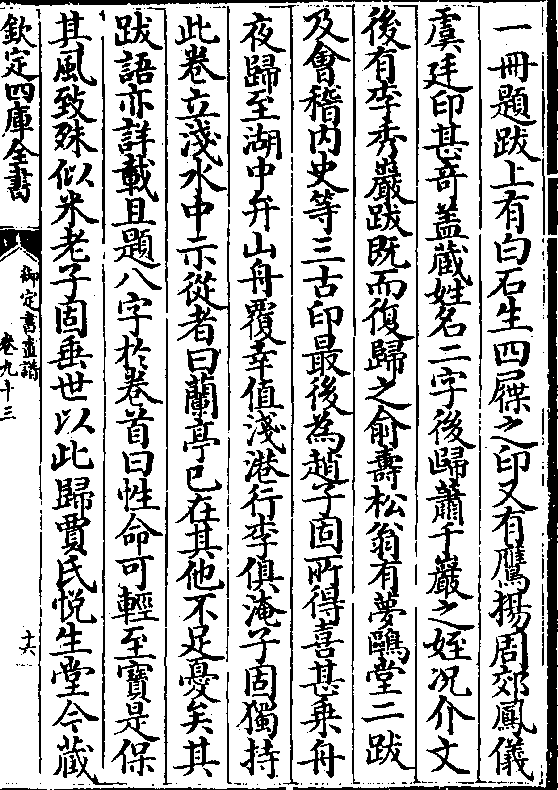 一冊題跋上有白石生四屧之印又有鷹揚周郊鳳儀
虞廷印甚竒盖藏姓名二字後歸蕭千巖之姪況介文
後有李秀巖跋既而復歸之俞壽松翁有夢鷗堂二跋
及會稽内史等三古印最後為趙子固所得喜甚乗舟
夜歸至湖中弁山舟覆幸值淺港行李俱淹子固獨持
此卷立淺水中示從者曰蘭亭已在其他不足憂矣其
跋語亦詳載且題八字於卷首曰性命可輕至寶是保
其風致殊似米老子固垂世以此歸賈氏悦生堂今藏
欽定四庫全書
御定書畫譜
卷九十三
十六